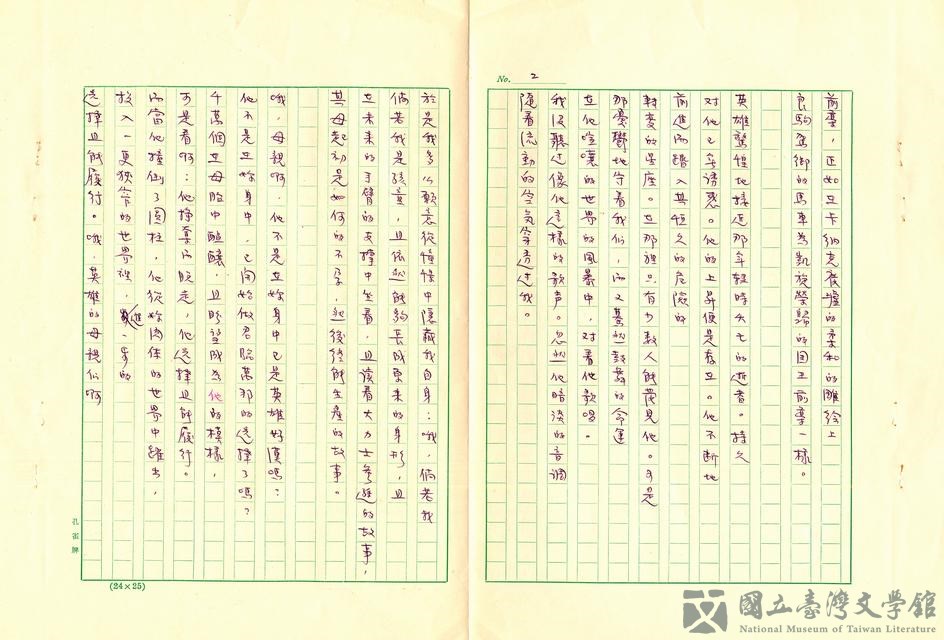 No. 2
前導,正如在卡納克廢墟的柔和的雕繪上
良駒駕御的馬車為凱旋榮歸的國王前導一樣。
英雄驚惶地接近那年輕時夭亡的逝者。持久
對他已無誘惑。他的上昇便是存在。他不斷地
前進而踏入其恒久的危險的
轉變的星座。在那裡只有少數人能覓見他。可是
那憂鬱地守着我們,而又驀然鼓舞的命運
在他喧嚷的世界的風暴中,對着他歌唱。
我沒聽過像他這樣的歌声。忽然他暗淡的音調
隨着流動的空氣穿透过我。
於是我多么願意從憧憬中隱藏我自身:哦,倘若我
倘若我是孩童,且依然能夠長成未來的身形,且
在未來的手臂的支撐中坐着,且讀着大力士參遜的故事,
其母起初是如何的不孕,然後終能生產的故事。
哦,母親啊,他不是在妳身中已是英雄好漢嗎:
他不是在妳身中,已開始做君臨萬邦的選擇了嗎?
千萬個在母胎中醞釀,且盼望成為他的模樣,
可是看啊:他捧棄而脫走,他選擇且能履行。
而當他撞倒了圓柱,他從妳肉体的世界中躍出,
投入一更狹窄的世界裡,進一步的
選擇且能履行。哦,英雄的母親們啊
孔雀牌
(24×25)
國立臺灣文學館
National Museum of Taiwan Literature